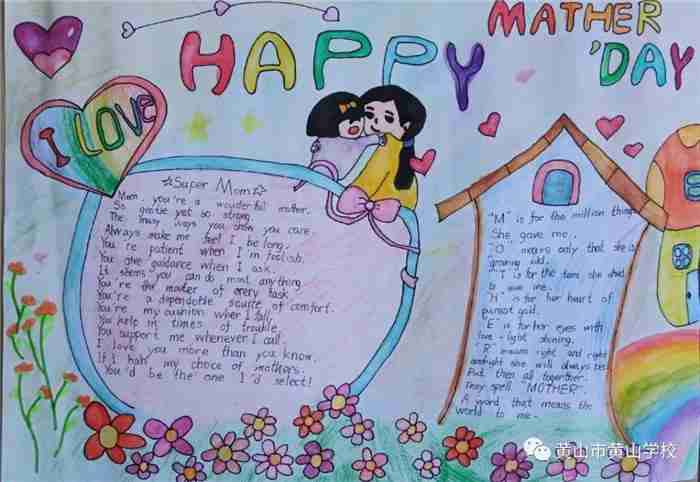 HAPPY MATHER
'DAY
I LOVE
☆Super Mom☆
Mom, you're a wonderful mother.
So gentle yet so strong.
The many ways you show you care.
Always make me feel I be long.
You're patient when I'm foolish.
You give guidance when I ask.
It seems you can do most anything.
You're the master of every task.
You're a dependable source of comfort.
You're my cushion when I fall.
You help in times of trouble.
You support me whenever I call.
I love you more than you know.
If I had my choice of mothers.
You'd be the one I'd select!
"M" is for the million things
She gave me.
"O" means only that she is
growing old.
"T" is for the tears she shed
to save me.
"H" is for her heart of
purest gold.
"E" is for her eyes with
love-light shining.
"R" means right and right
she will always be.
Put them all together.
They spell "MOTHER".
A word that means the
world to me.
黄山市黄山学校